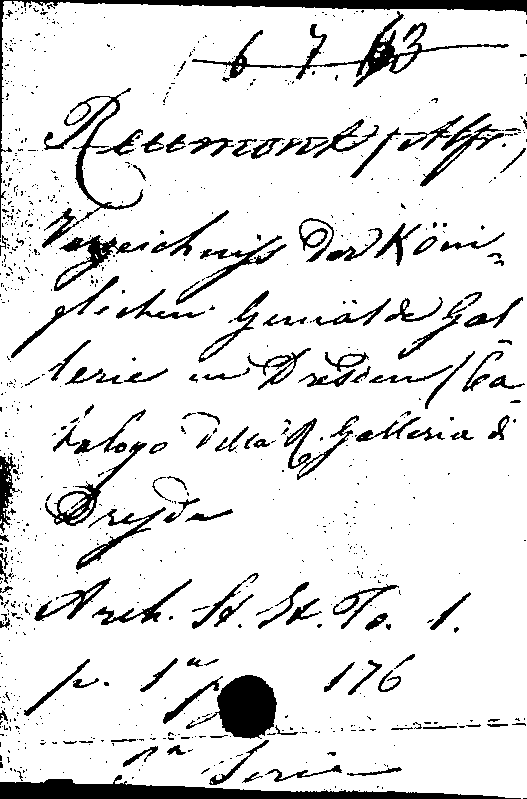 6. 7. 63
Reumont (Alfr.)
Verzeichniss der Köni-
glichen Gemälde Gal
lerie in Dresden (Ca-
talogo della R. Galleria di
Dresda
Arch. St. It. To. 1.
p. 1ª p. 176
3ª Serie